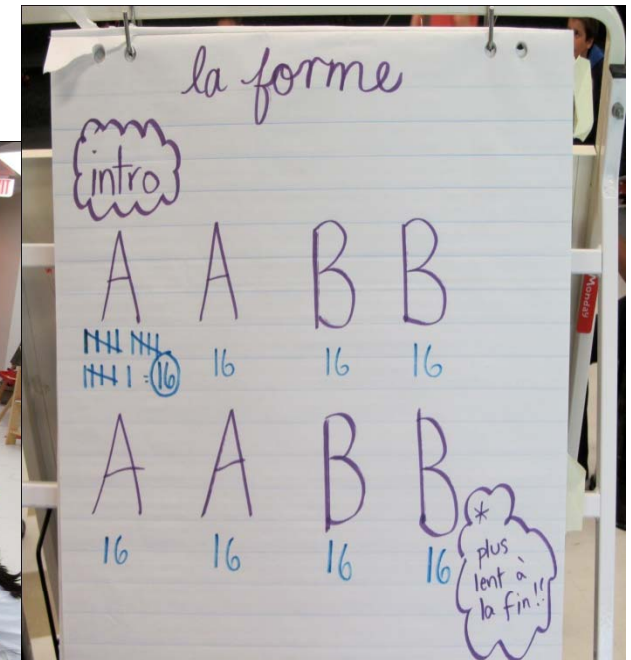 la forme
intro
A A B B
16 16 16
= 16
A A B B
16 16 16 16
*
plus
lent à
la fin!!
Monday